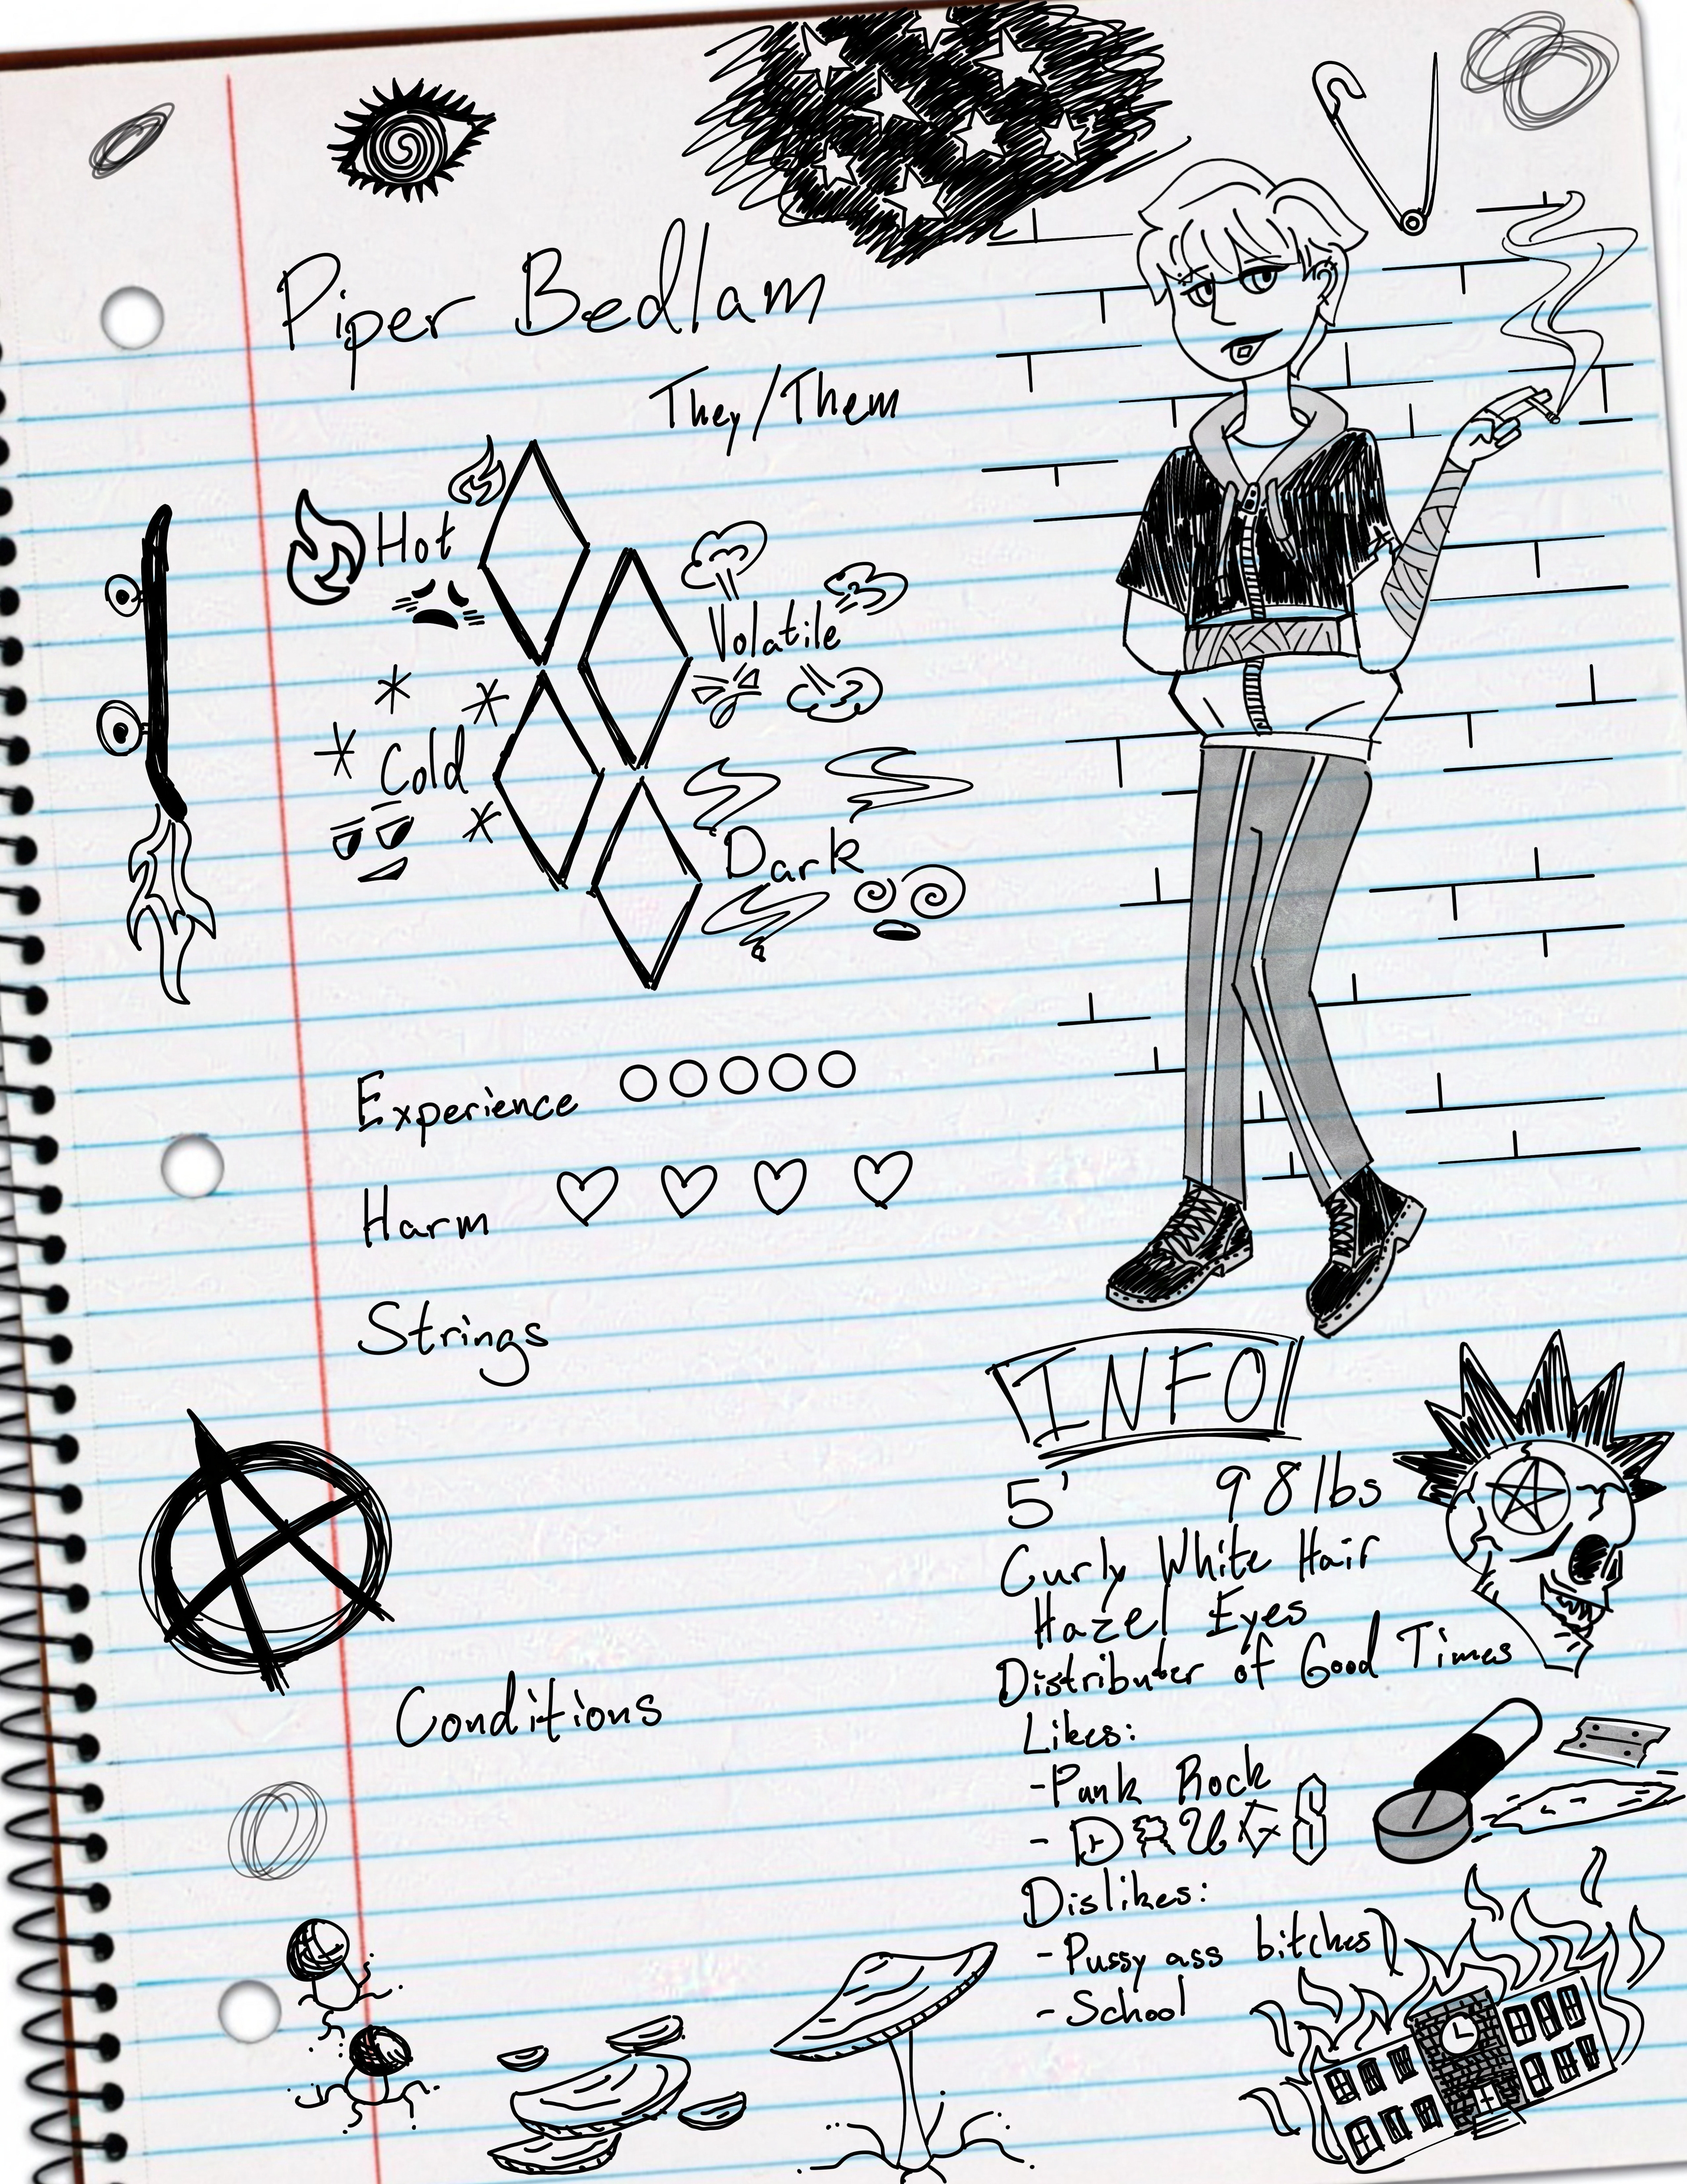 Piper Bedlam
They/Them
Hot
Volatile
Cold
Dark
Experience
Harm
Strings
Conditions
INFO
5' 98 lbs
Curly White Hair
Hazel Eyes
Distributer of Good Times
Likes:
-Punk Rock
- DRUGS
Dislikes:
-Pussy ass bitches
-School